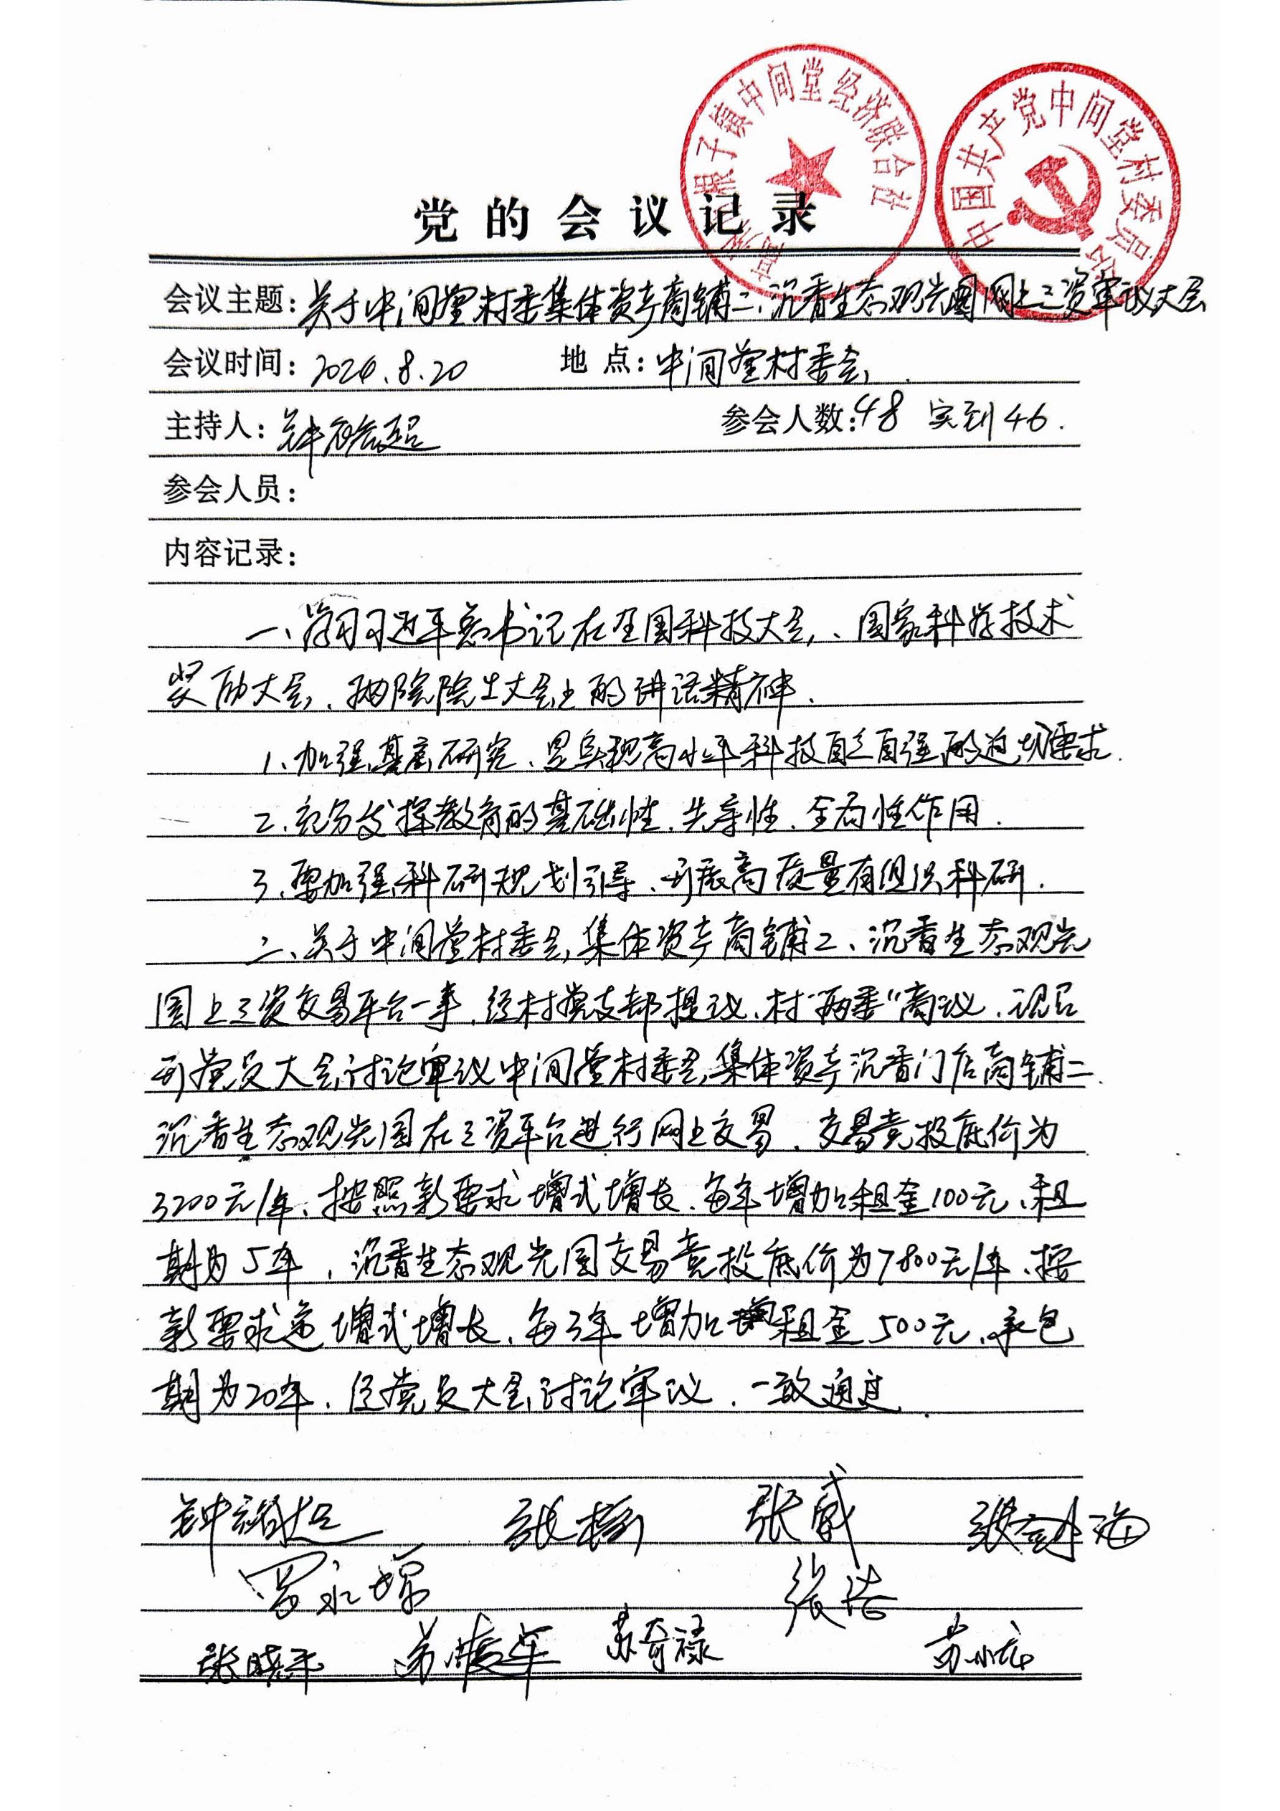 根子镇中间堂经济联合社
中国共产党中间堂村委员会
党的会议记录
会议主题：关于中间堂村委集体资产商铺二、沉香生态观光园网上三资审议大会
会议时间：2024.8.20 地点：中间堂村委会
主持人： 参会人数：48 实到46.
参会人员：
内容记录：
一、学习习近平总书记在全国科技大会、国家科学技术
奖励大会、两院院士大会上的讲话精神.
1、加强基层研究、是实现高水平科技自立自强的迫切要求.
2、充分发挥教育的基础性、先导性、全局性作用.
3、要加强科研规划引导、开展高质量有组织科研.
二、关于中间堂村委会集体资产商铺二、沉香生态观光
园上三资交易平台一事，经村党支部提议、村"两委"商议、现召
开党员大会讨论审议中间堂村委会集体资产沉香门店商铺二、
沉香生态观光园在三资平台进行网上交易，交易竞投底价为
3200元/年、按照新要求增式增长、每年增加租金100元、租
期为5年，沉香生态观光园交易竞投底价为7800元/年、按
新要求递增式增长、每3年增加租金500元、承包
期为20年、经党员大会讨论审议、一致通过.
张威
张浩
张晓平 苏奇禄